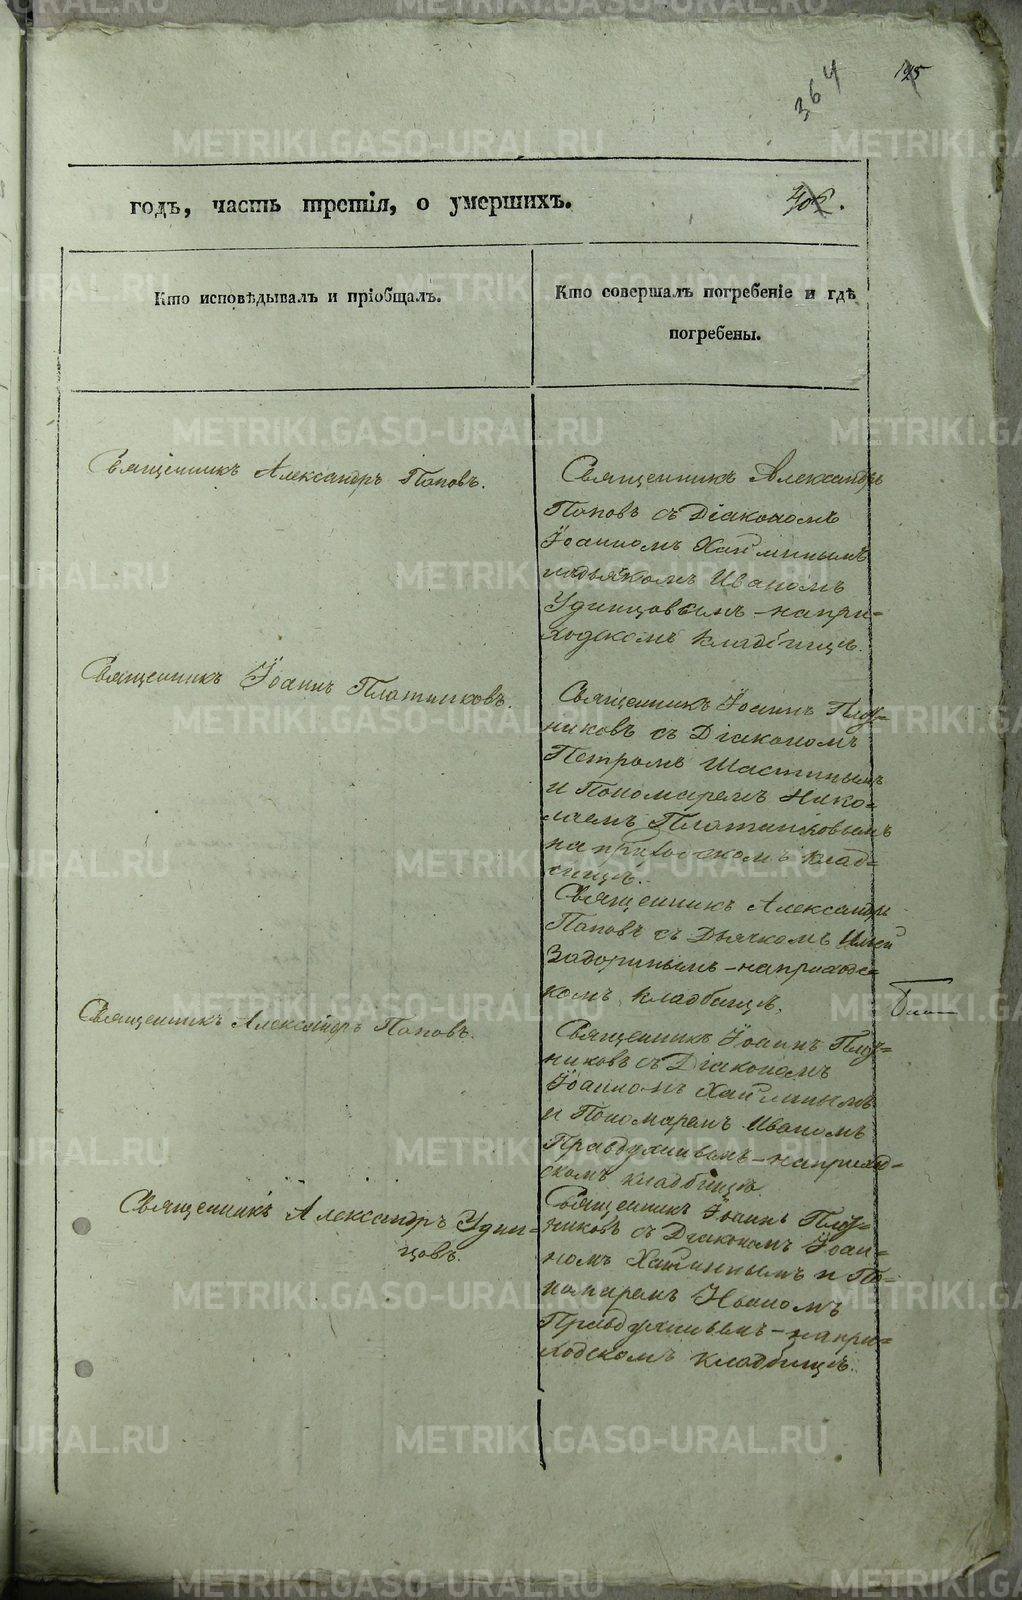 364
195
годъ, часть третія, о умершихъ.
406.
Кто исповѣдывалъ и пріобщалъ.
Кто совершалъ погребеніе и гдѣ
погребены.
Священникъ Александръ Поповъ.
Священникъ Александръ
Поповъ съ Діакономъ
Іоанномъ
Иваномъ
Удинцовымъ – на при=
ходскомъ кладбищѣ.
Священникъ Іоаннъ Платниковъ.
Священникъ Іоаннъ
никовъ съ Діакономъ
Петромъ Шастинымъ
и Пономаремъ Нико=
лаемъ Платниковымъ
на приходскомъ клад=
бищѣ.
Священникъ Александръ
Поповъ съ Дьячкомъ Ильей
Задоринымъ – на приходс=
комъ кладбищѣ.
Священникъ Александръ Поповъ.
Священникъ Іоаннъ
никовъ съ Діакономъ
Іоанномъ
и Пономаремъ Иваномъ
Правдухинымъ – на приход=
скомъ кладбищѣ.
Священникъ Александръ Удин=
цовъ.
Священникъ Іоаннъ
никовъ съ Діакономъ Іоан=
номъ и По=
номаремъ Иваномъ
Правдухинымъ – на при=
ходскомъ кладбищѣ.
METRIKI.GASO-URAL.RU